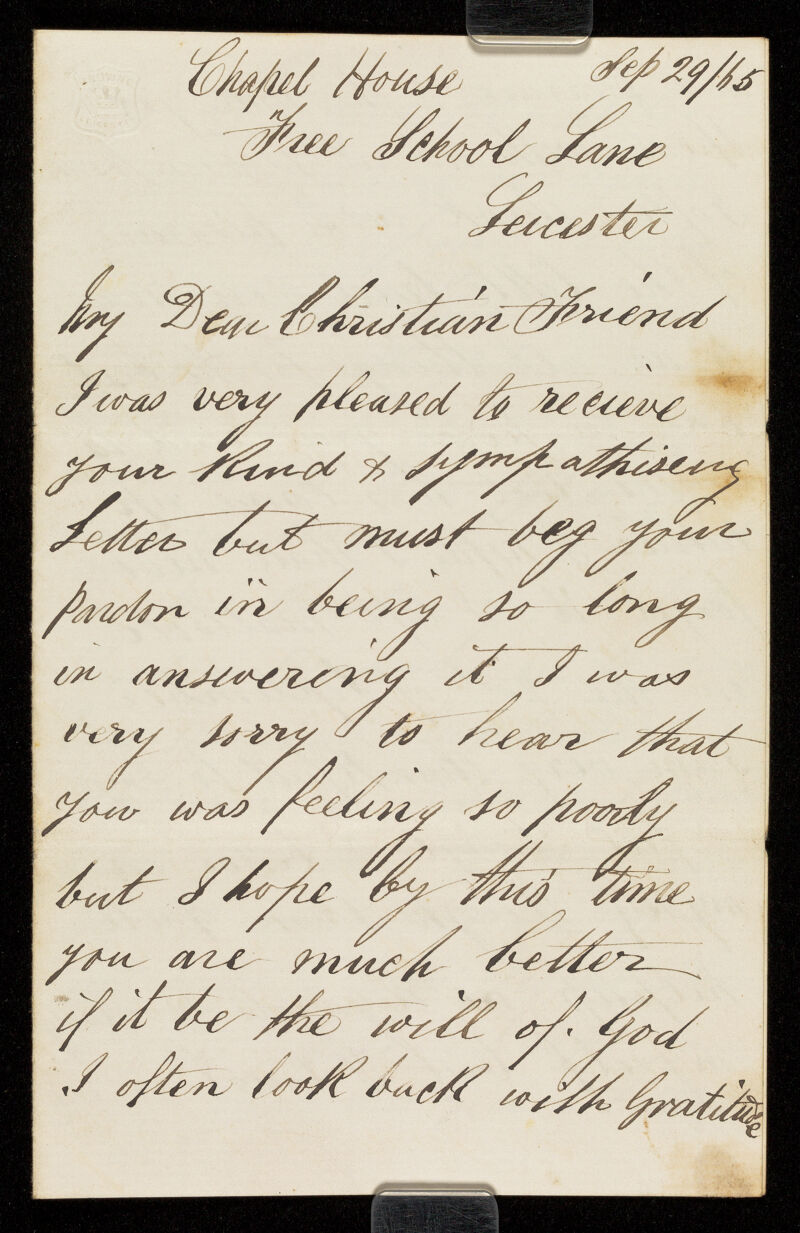 Chapel House Sep 29/65
Free School Lane
Leicester
My Dear Christian Friend
I was very pleased to recieve
your kind & sympathiseing
Letter but must beg your
pardon in being so long
in answering it I was
very sorry to hear that
you was feeling so poorly
but I hope by this time
you are much better
if it be the will of. God
I often look back with Gratitude